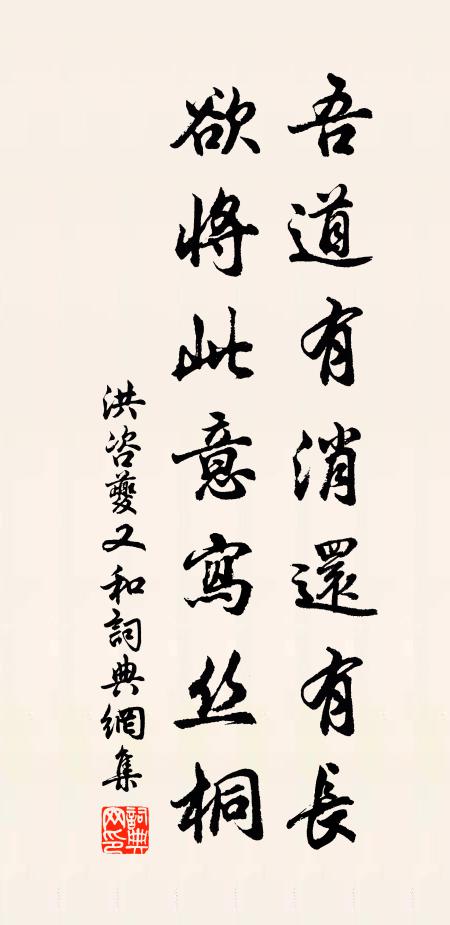 吾道有消還有長
欲將此意寫丝桐
洪咨夔又和詞典網集
詞典网印